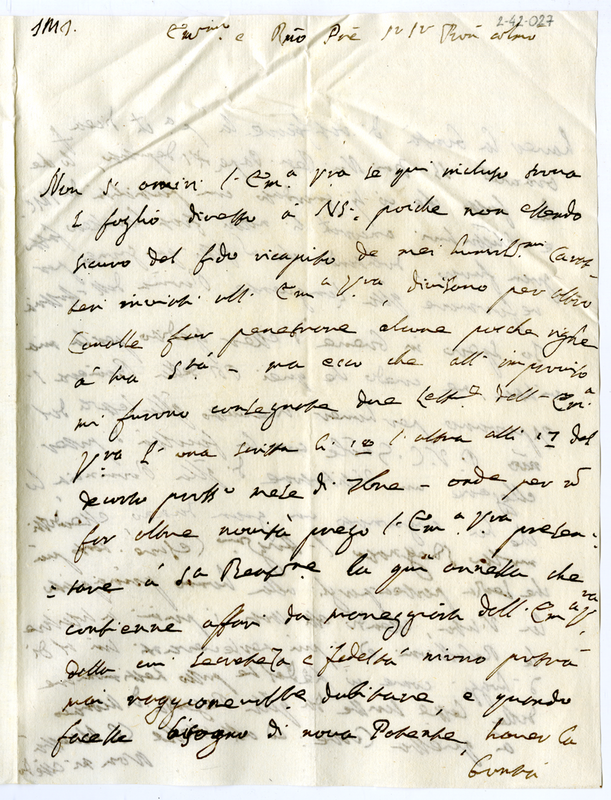 2-42-027
JMJ.
Em.mo e Rmo Pre Pron colmo
Non si amiri l'Em.a Vra se qui incluso trova
1 foglio diretto à NS:, poiche non essendo
sicuro del fido ricapito de miei humil.mi Carat-
teri inviati all' Em.a Vra, divisono per altro
Canalle far penetrare alcune poche righe
à sua Stà - ma ecco che all' improviso
mi furono consegnate due lett.e dell' Em.a
Vra l' una scritta li 10 l'altra alli 17 del
decorso pross.o mese di Xbre - onde per nō
far altre novità prego l'Em.a Vra presen-
-tare à Sa la qui annessa che
contienne affari da maneggiarsi dall' Em.a Vra
dalla cui secretezza e fedeltà niuno potrà
mai raggionevolte dubitare, e quando
facesse bisogno di nova Patente, haver la
bontà